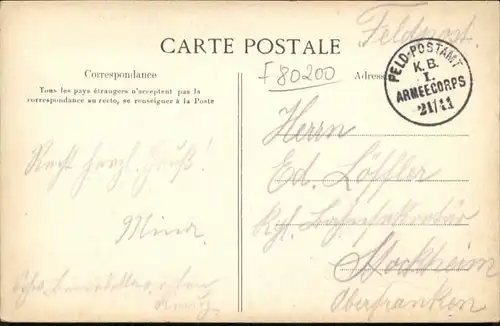 Feldpost.
CARTE POSTALE
F 80200
FELD-POSTAMT
K.B.
I.
ARMEECORPS
21/11
Correspondance
Adresse
Tous les pays étrangers n'acceptent pas la
correspondance au recto, se renseigner à la Poste
Recht herzl. Gruß!
Herrn
Ed. Löffler
Kgl. Bahnsekretär
Stockheim
Oberfranken